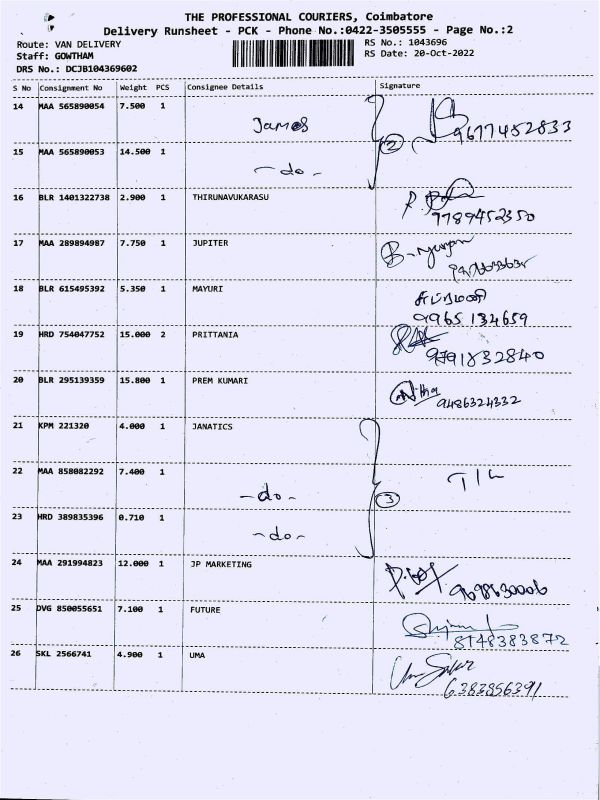 THE PROFESSIONAL COURIERS, Coimbatore
Delivery Runsheet - PCK - Phone No.:0422-3505555 - Page No.:2
Route: VAN DELIVERY RS No.: 1043696
Staff: GOWTHAM RS Date: 20-Oct-2022
DRS No.: DCJB104369602
S No Consignment No Weight PCS Consignee Details Signature
14 MAA 565890054 7.500 1 James 2 9677452833
15 MAA 565890053 14.500 1 -do-
16 BLR 1401322738 2.900 1 THIRUNAVUKARASU 9789452350
17 MAA 289894987 7.750 1 JUPITER
18 BLR 615495392 5.350 1 MAYURI சுப்ரமணி
9965 134659
19 HRD 754047752 15.000 2 PRITTANIA 9791832840
20 BLR 295139359 15.800 1 PREM KUMARI 9486324332
21 KPM 221320 4.000 1 JANATICS
22 MAA 858082292 7.400 1 -do- 3
23 HRD 389835396 0.710 1 -do-
24 MAA 291994823 12.000 1 JP MARKETING
25 DVG 850055651 7.100 1 FUTURE 8148383872
26 SKL 2566741 4.900 1 UMA 6383856391